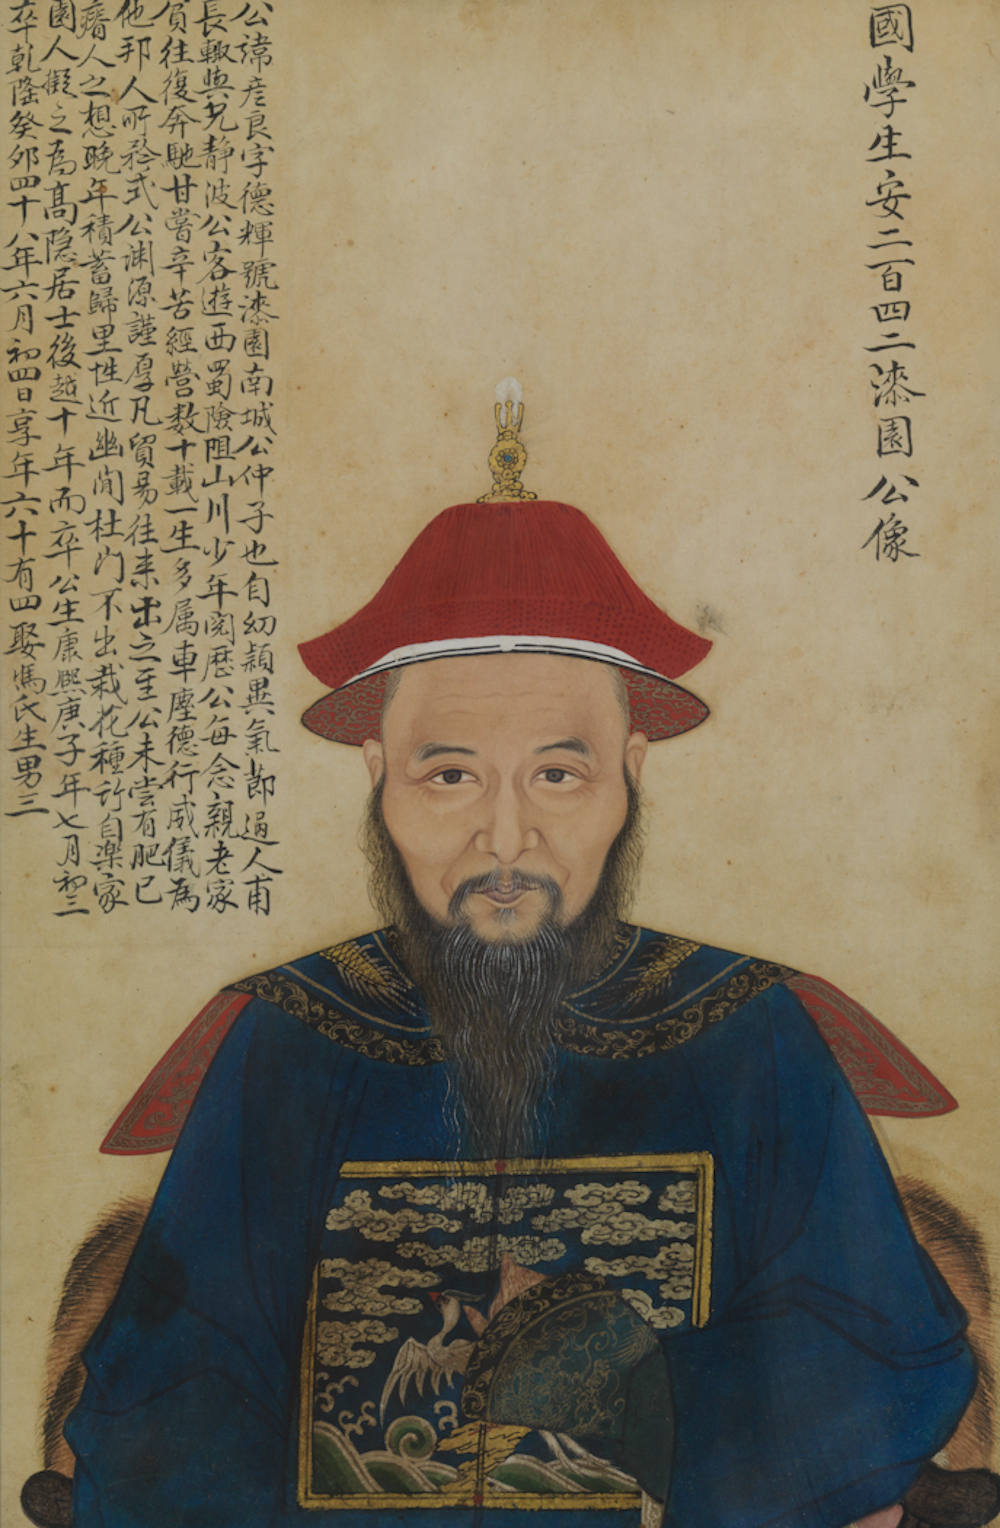 國學生安二百四二漆園公像
公諱彦良字德輝號漆園南城公仲子也自幼穎異氣節過人甫
長輙與兄靜波公客遊西蜀險阻山川少年閱歷公每念親老家
貧往復奔馳甘嘗辛苦經營数十載一生多属車塵德行威儀為
他邦人所矜式公渊源謹厚凡貿易往来出之至公未尝有肥已
瘠人之想晚年積蓄歸里性近幽閒杜门不出栽花種竹自楽家
園人擬之為髙隐居士後越十年而卒公生康熙庚子年七月初三
卒乾隆癸卯四十八年六月初四日享年六十有四娶馮氏生男三